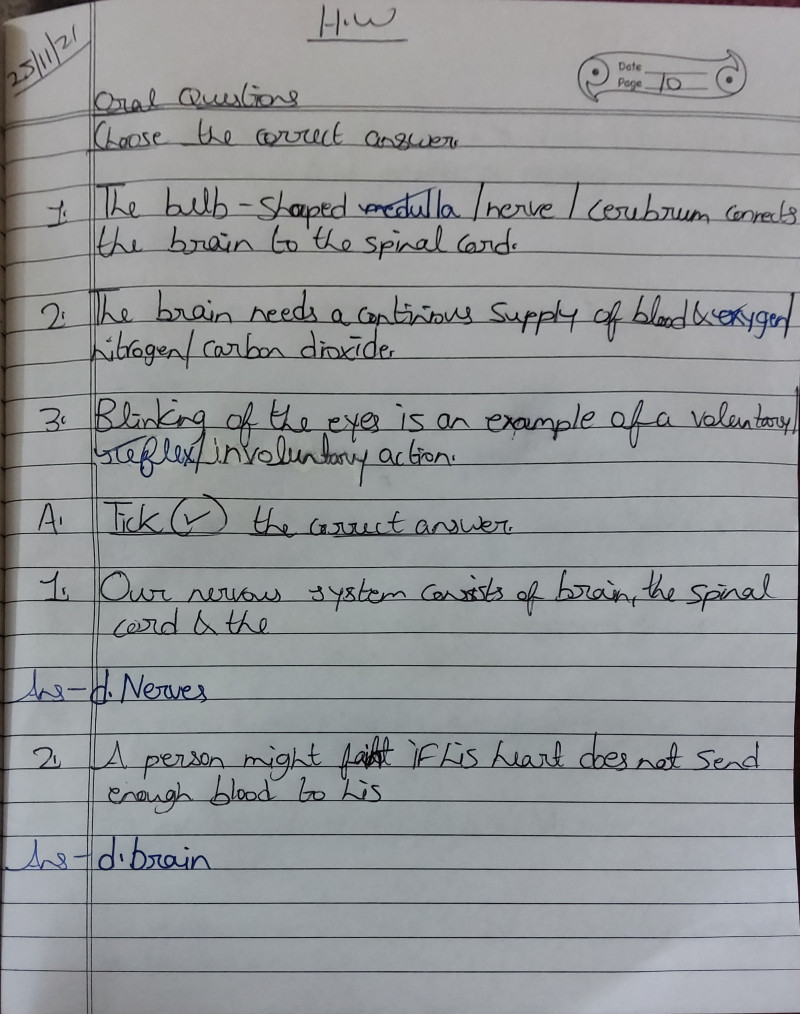 H.W
25/11/21
Date
Page 10
Oral Questions
Choose the correct answer.
1. The bulb-shaped medulla / nerve / cerubrum connects
the brain to the spinal cord.
2. The brain needs a continious supply of blood & oxygen/
nitrogen/ carbon dioxide.
3. Blinking of the eyes is an example of a voluntary/
reflex/ involuntary action.
A. Tick (✓) the correct answer.
1. Our nervous system consists of brain, the spinal
cord & the
Ans - d. Nerves
2. A person might faint if his heart does not send
enough blood to his
Ans - d. brain